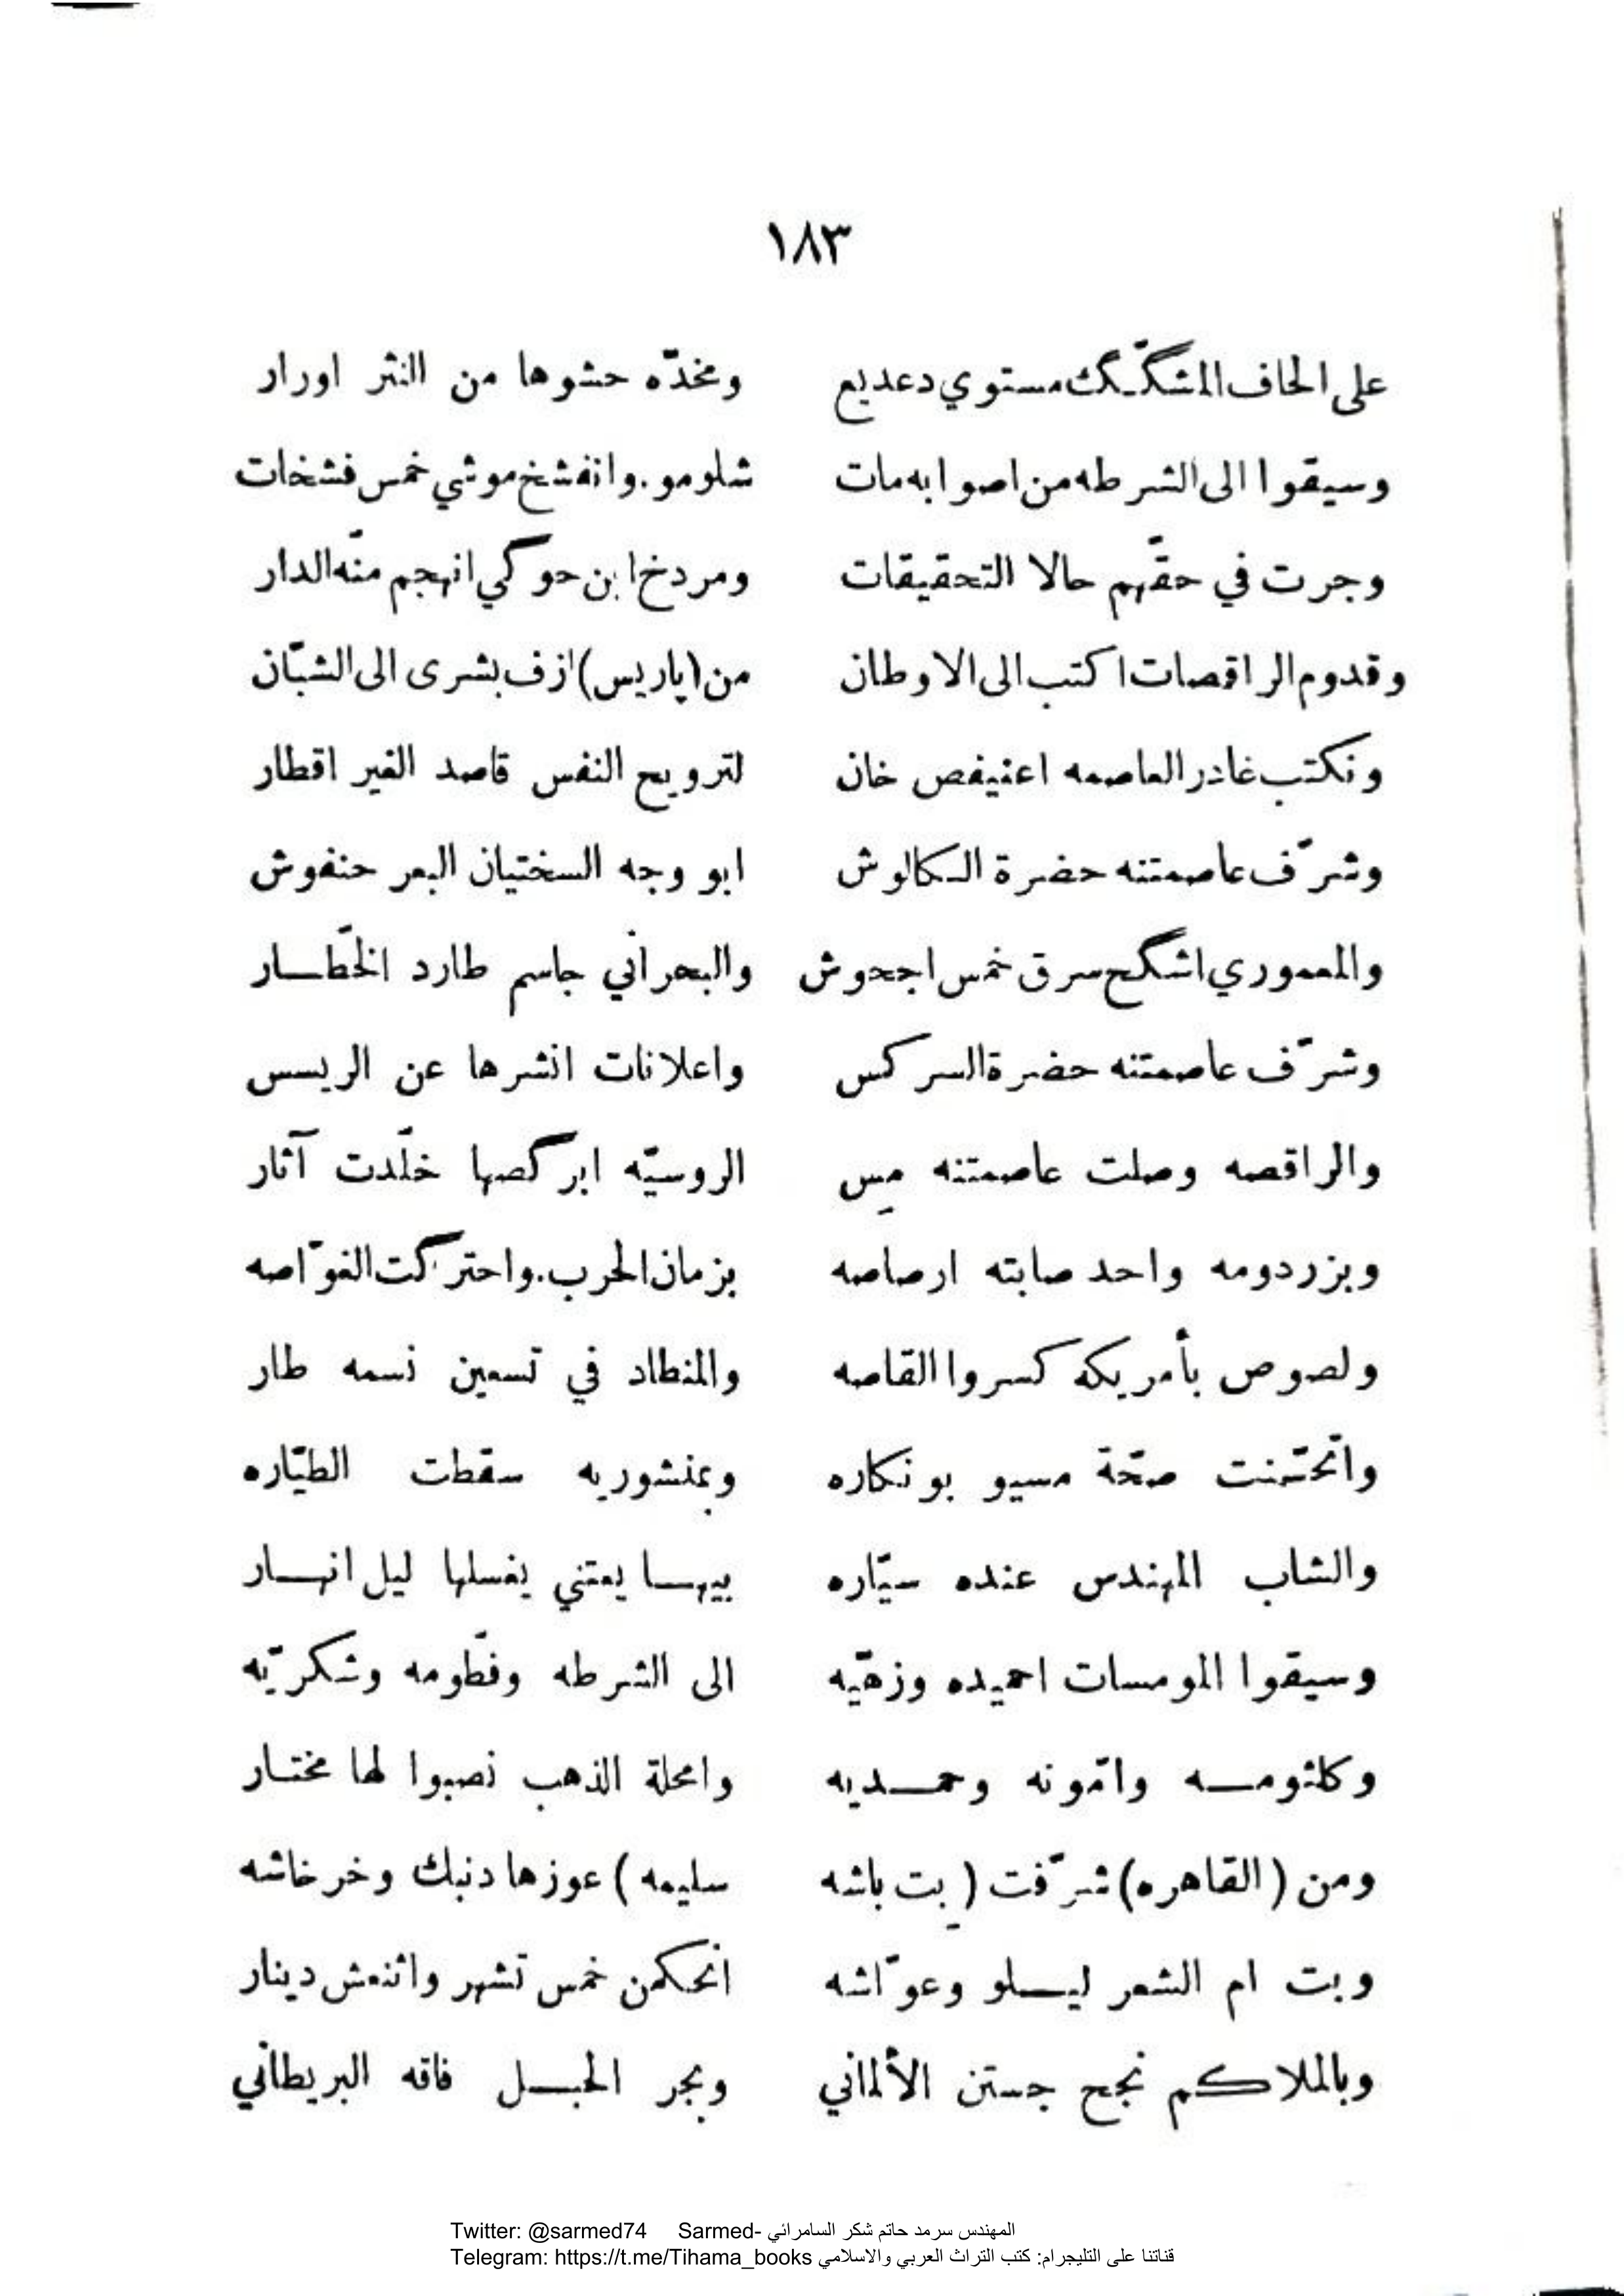 ١٨٣
على الحاف المشگّـگك مستوي دعديع ومخدّه حشوها من النثر اورار
وسيقوا الى الشرطه من اصوابه مات شلومو . وانفشخ موشي خمس فشخات
وجرت في حقّهم حالا التحقيقات ومردخ ابن حوگي انهجم منّه الدار
وقدوم الراقصات اكتب الى الاوطان من (پاريس) ازف بشرى الى الشبّان
ونكتب غادر العاصمه اعنيفص خان لترويح النفس قاصد الغير اقطار
وشرّف عاصمتنه حضرة الـكالوش ابو وجه السختيان البعر حنفوش
والمعموري اشگح سرق خمس اجحوش والبحراني جاسم طارد الخطّـار
وشرّف عاصمتنه حضرة السركس واعلانات انشرها عن الريسس
والراقصه وصلت عاصمتنه مِس الروسيّه ابرگصها خلّدت آثار
وبزردومه واحد صابته ارصاصه بزمان الحرب . واحترگت الغوّاصه
ولصوص بأمريكه كسروا القاصه والمنطاد في تسعين نسمه طار
واتحسّنت صحّة مسيو بونكاره وبمنشوريه سقطت الطيّاره
والشاب المهندس عنده سيّاره بيهــا يعتني يغسلها ليل انهــار
وسيقوا المومسات احميده وزهيّه الى الشرطه وفطّومه وشكريّه
وكلثومـــه وامّونه وحمــديه وامحلة الذهب نصبوا لها مختـار
ومن (القاهره) شرّفت (بِت باشه سليمه) عوزها دنبك وخرخاشه
وبت ام الشعر ليــلو وعوّاشه انحكمن خمس تشهر واثنعش دينار
وبالملاكم نجح جستن الألماني وبجر الحبــل فاقه البريطاني
Twitter: @sarmed74 Sarmed- المهندس سرمد حاتم شكر السامرائي
Telegram: https://t.me/Tihama_books قناتنا على التليجرام: كتب التراث العربي والاسلامي